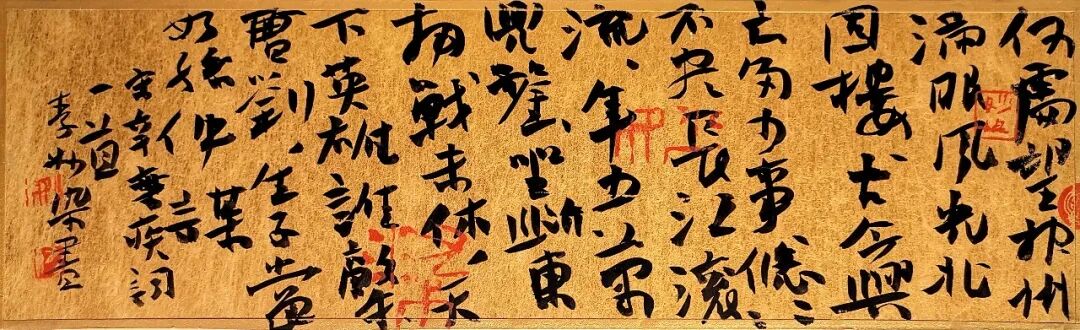 何處望神州
滿眼風光北
固樓千古興
亡多少事悠々
不盡長江滾
流年少萬
兜鍪坐斷東
南戰未休天
下英雄誰敵手
曹劉生子當
如孫仲謀
宋辛棄疾詞
一首
李 染墨